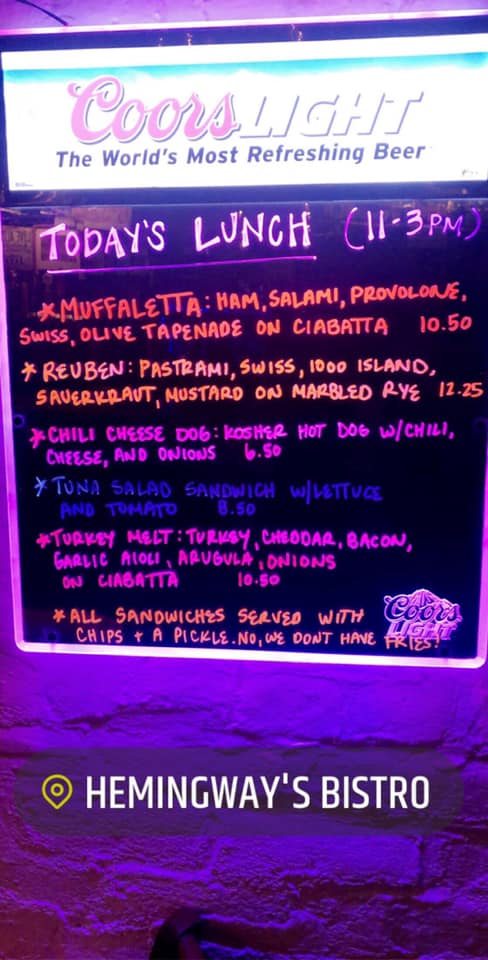 Coors LIGHT
The World's Most Refreshing Beer
TODAY'S LUNCH (11-3PM)
*MUFFALETTA: HAM, SALAMI, PROVOLONE,
SWISS, OLIVE TAPENADE ON CIABATTA 10.50
*REUBEN: PASTRAMI, SWISS, 1000 ISLAND,
SAUERKRAUT, MUSTARD ON MARBLED RYE 12.25
*CHILI CHEESE DOG: KOSHER HOT DOG W/CHILI,
CHEESE, AND ONIONS 6.50
*TUNA SALAD SANDWICH W/LETTUCE
AND TOMATO 8.50
*TURKEY MELT: TURKEY, CHEDDAR, BACON,
GARLIC AIOLI, ARUGULA, ONIONS
ON CIABATTA 10.50
*ALL SANDWICHES SERVED WITH
CHIPS + A PICKLE. NO, WE DONT HAVE FRIES!
Coors
LIGHT
HEMINGWAY'S BISTRO